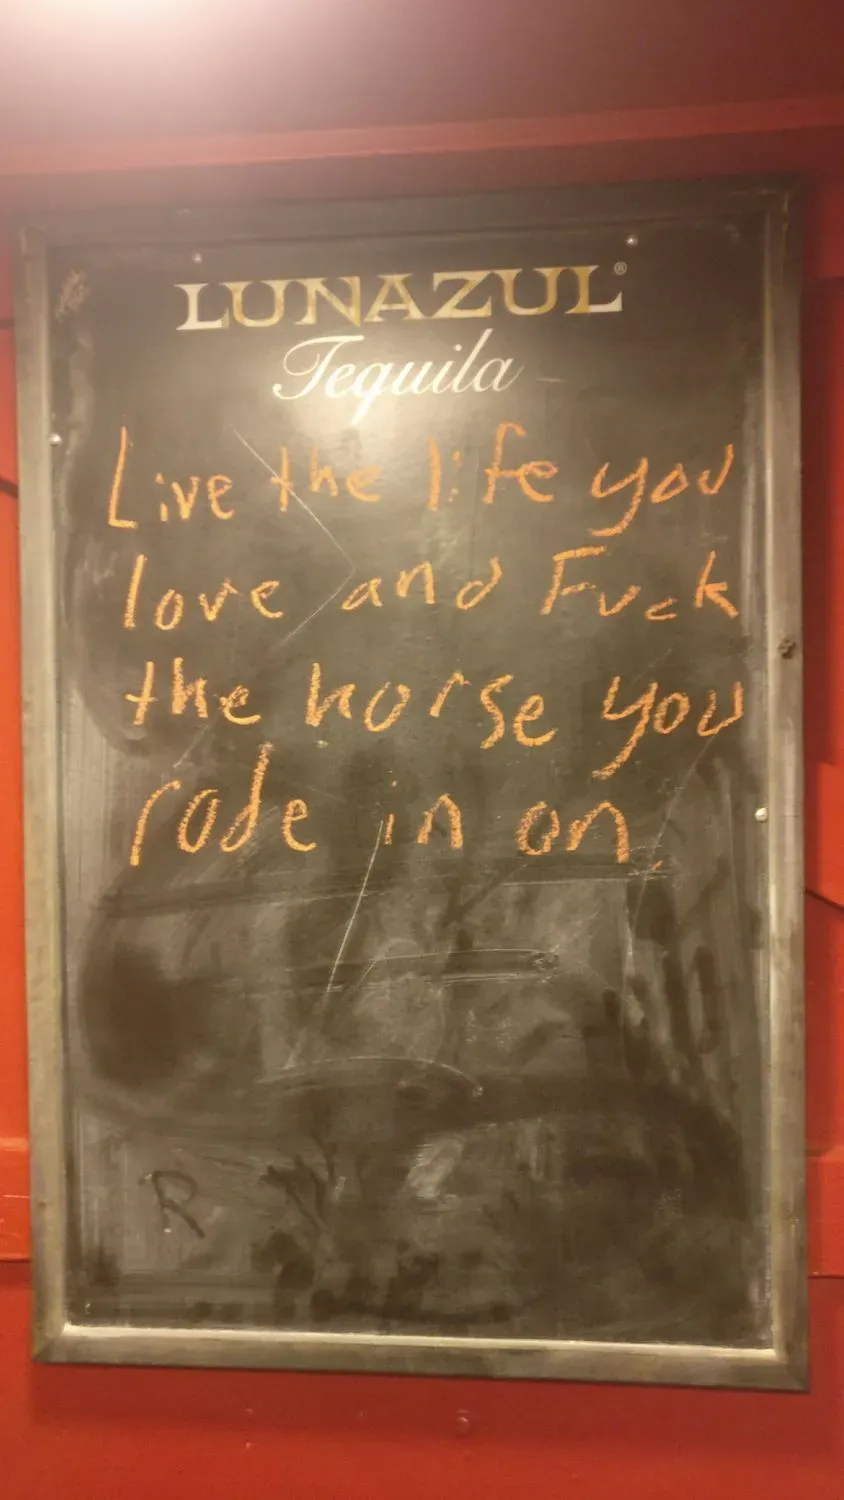 LUNAZUL®
Tequila
Live the life you
love and Fuck
the horse you
rode in on.
R